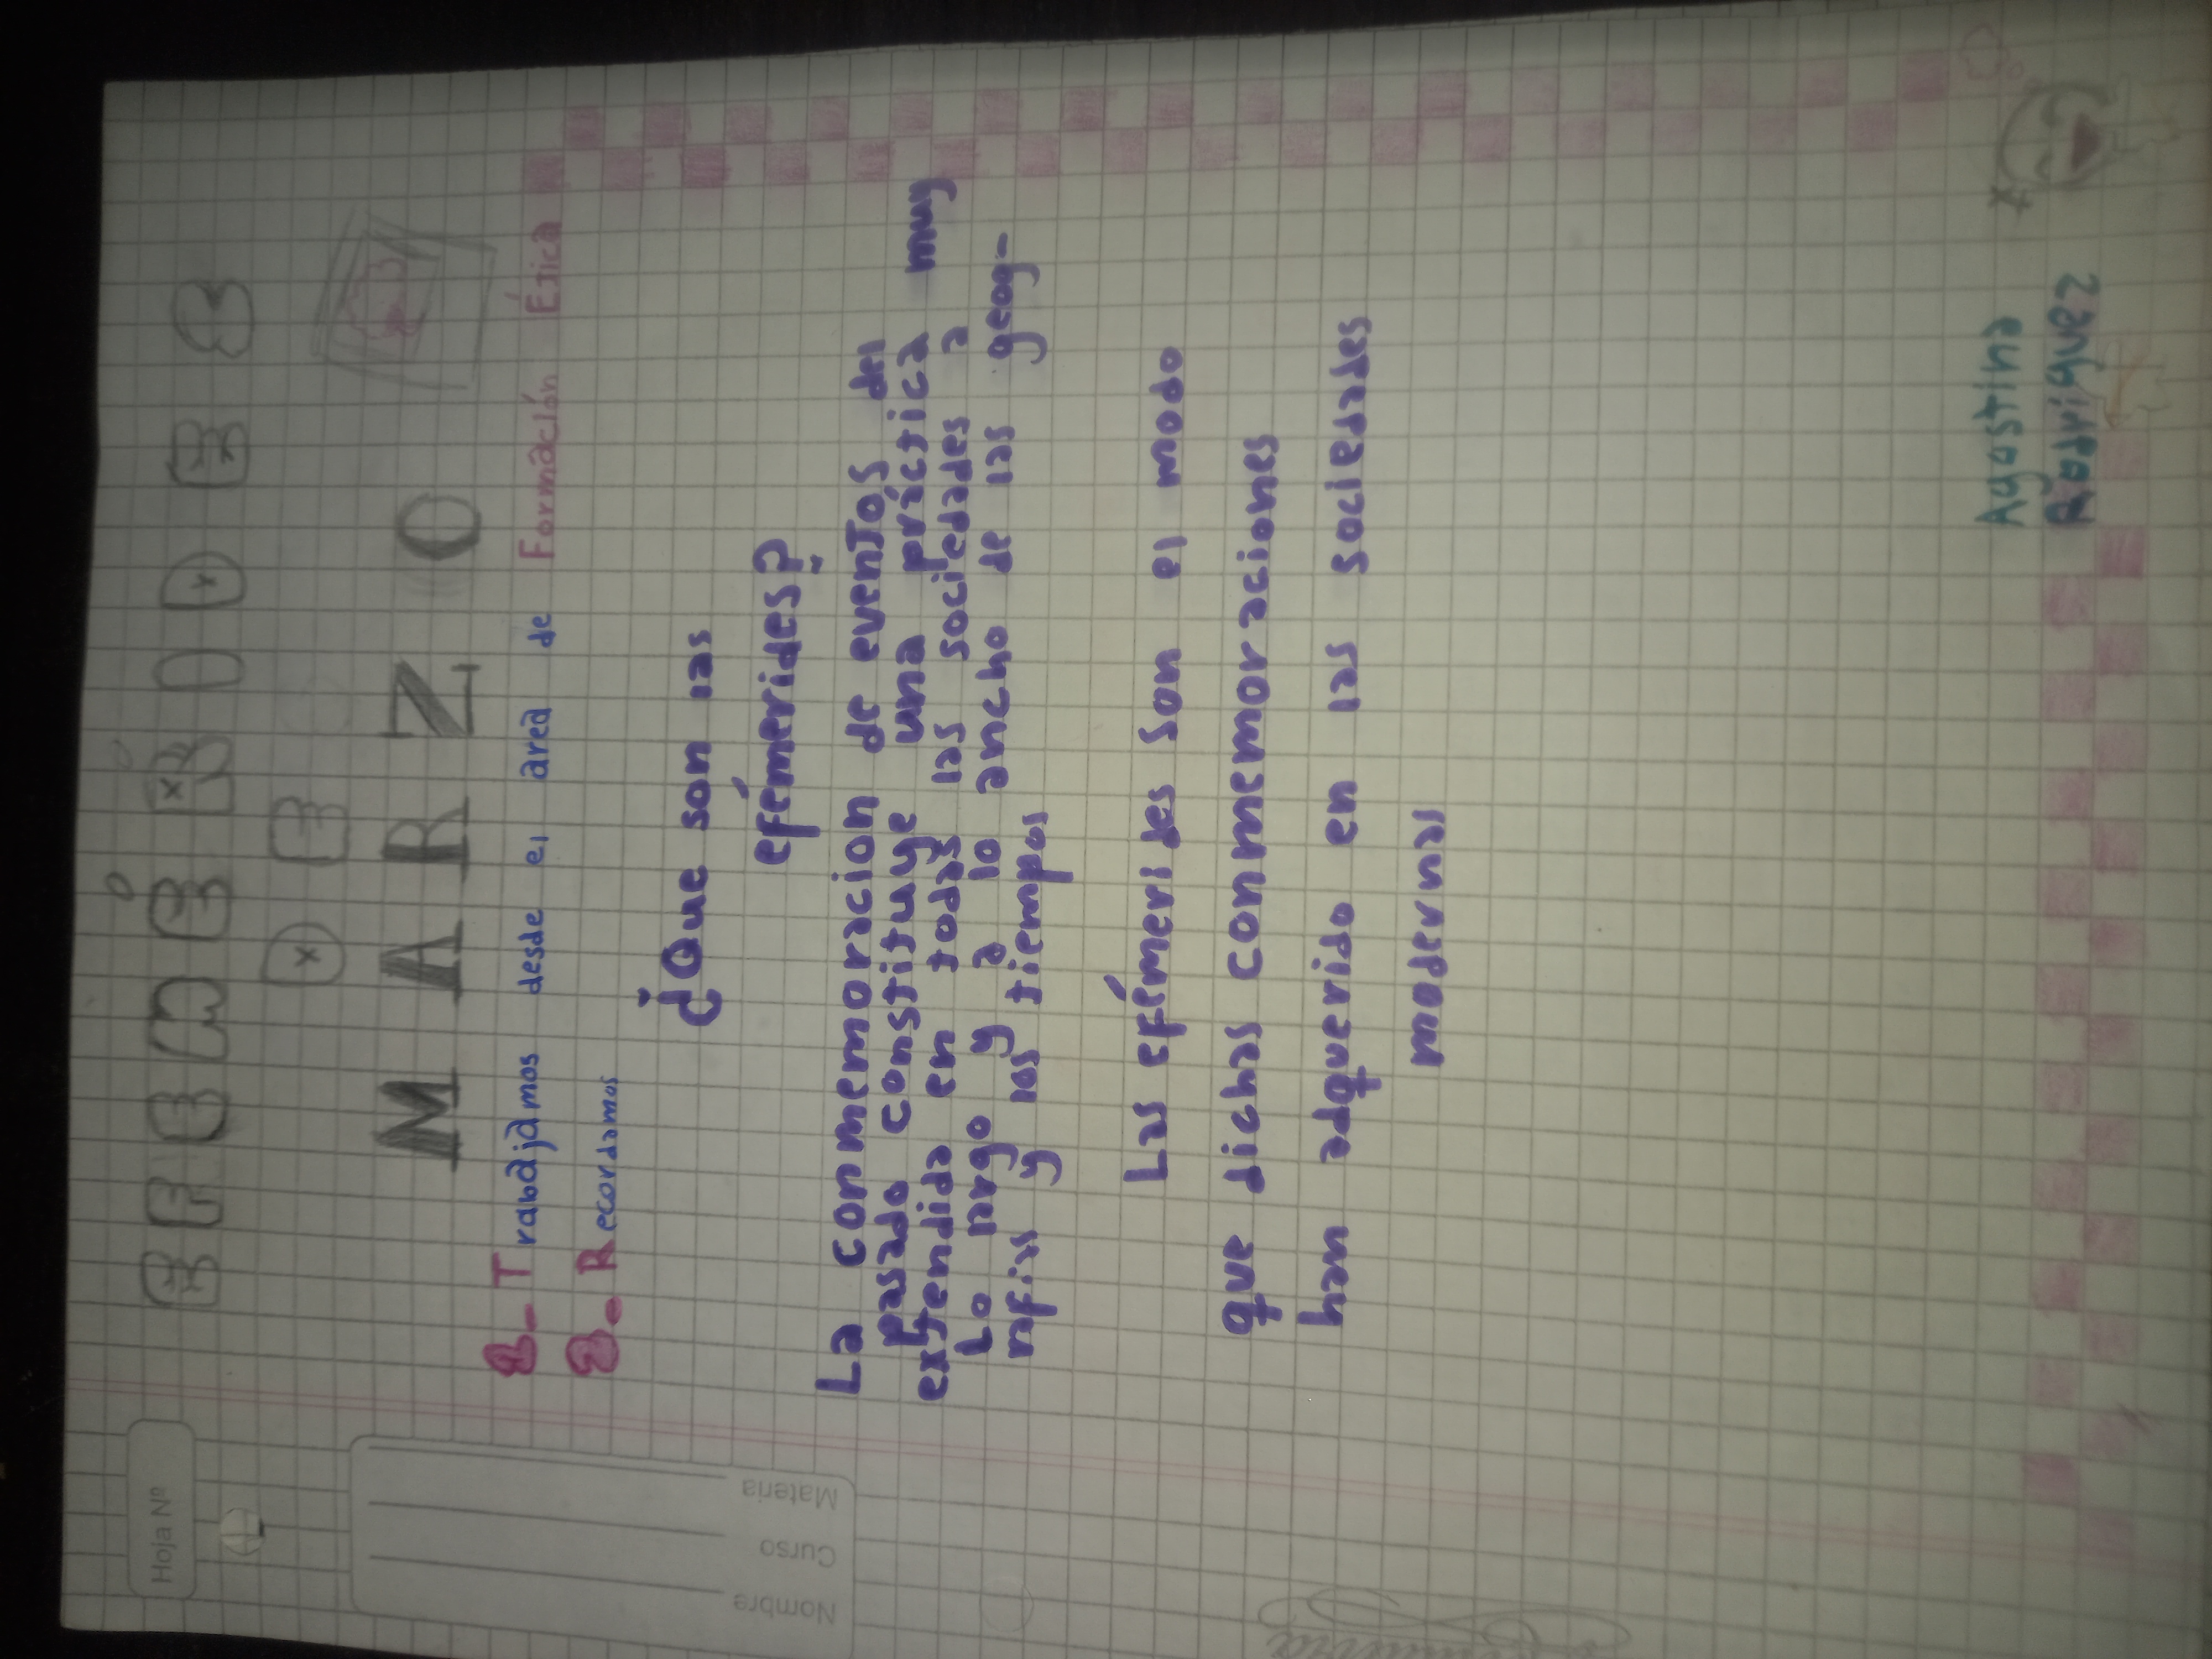 Hoja Nº
EFEMÉRIDES
DE
MARZO
Trabajamos desde el área de Formación Ética
Recordamos
¿Que son las
efémerides?
La conmemoracion de eventos del
pasado constituye una práctica muy
extendida en todas las sociedades a
Lo largo y a lo ancho de las geog-
rafias y los tiempos
Las efémerides son el modo
que dichas conmemoraciones
han adquerido en las sociedades
modernas
Agostina
Rodriguez
Nombre
Curso
Materia